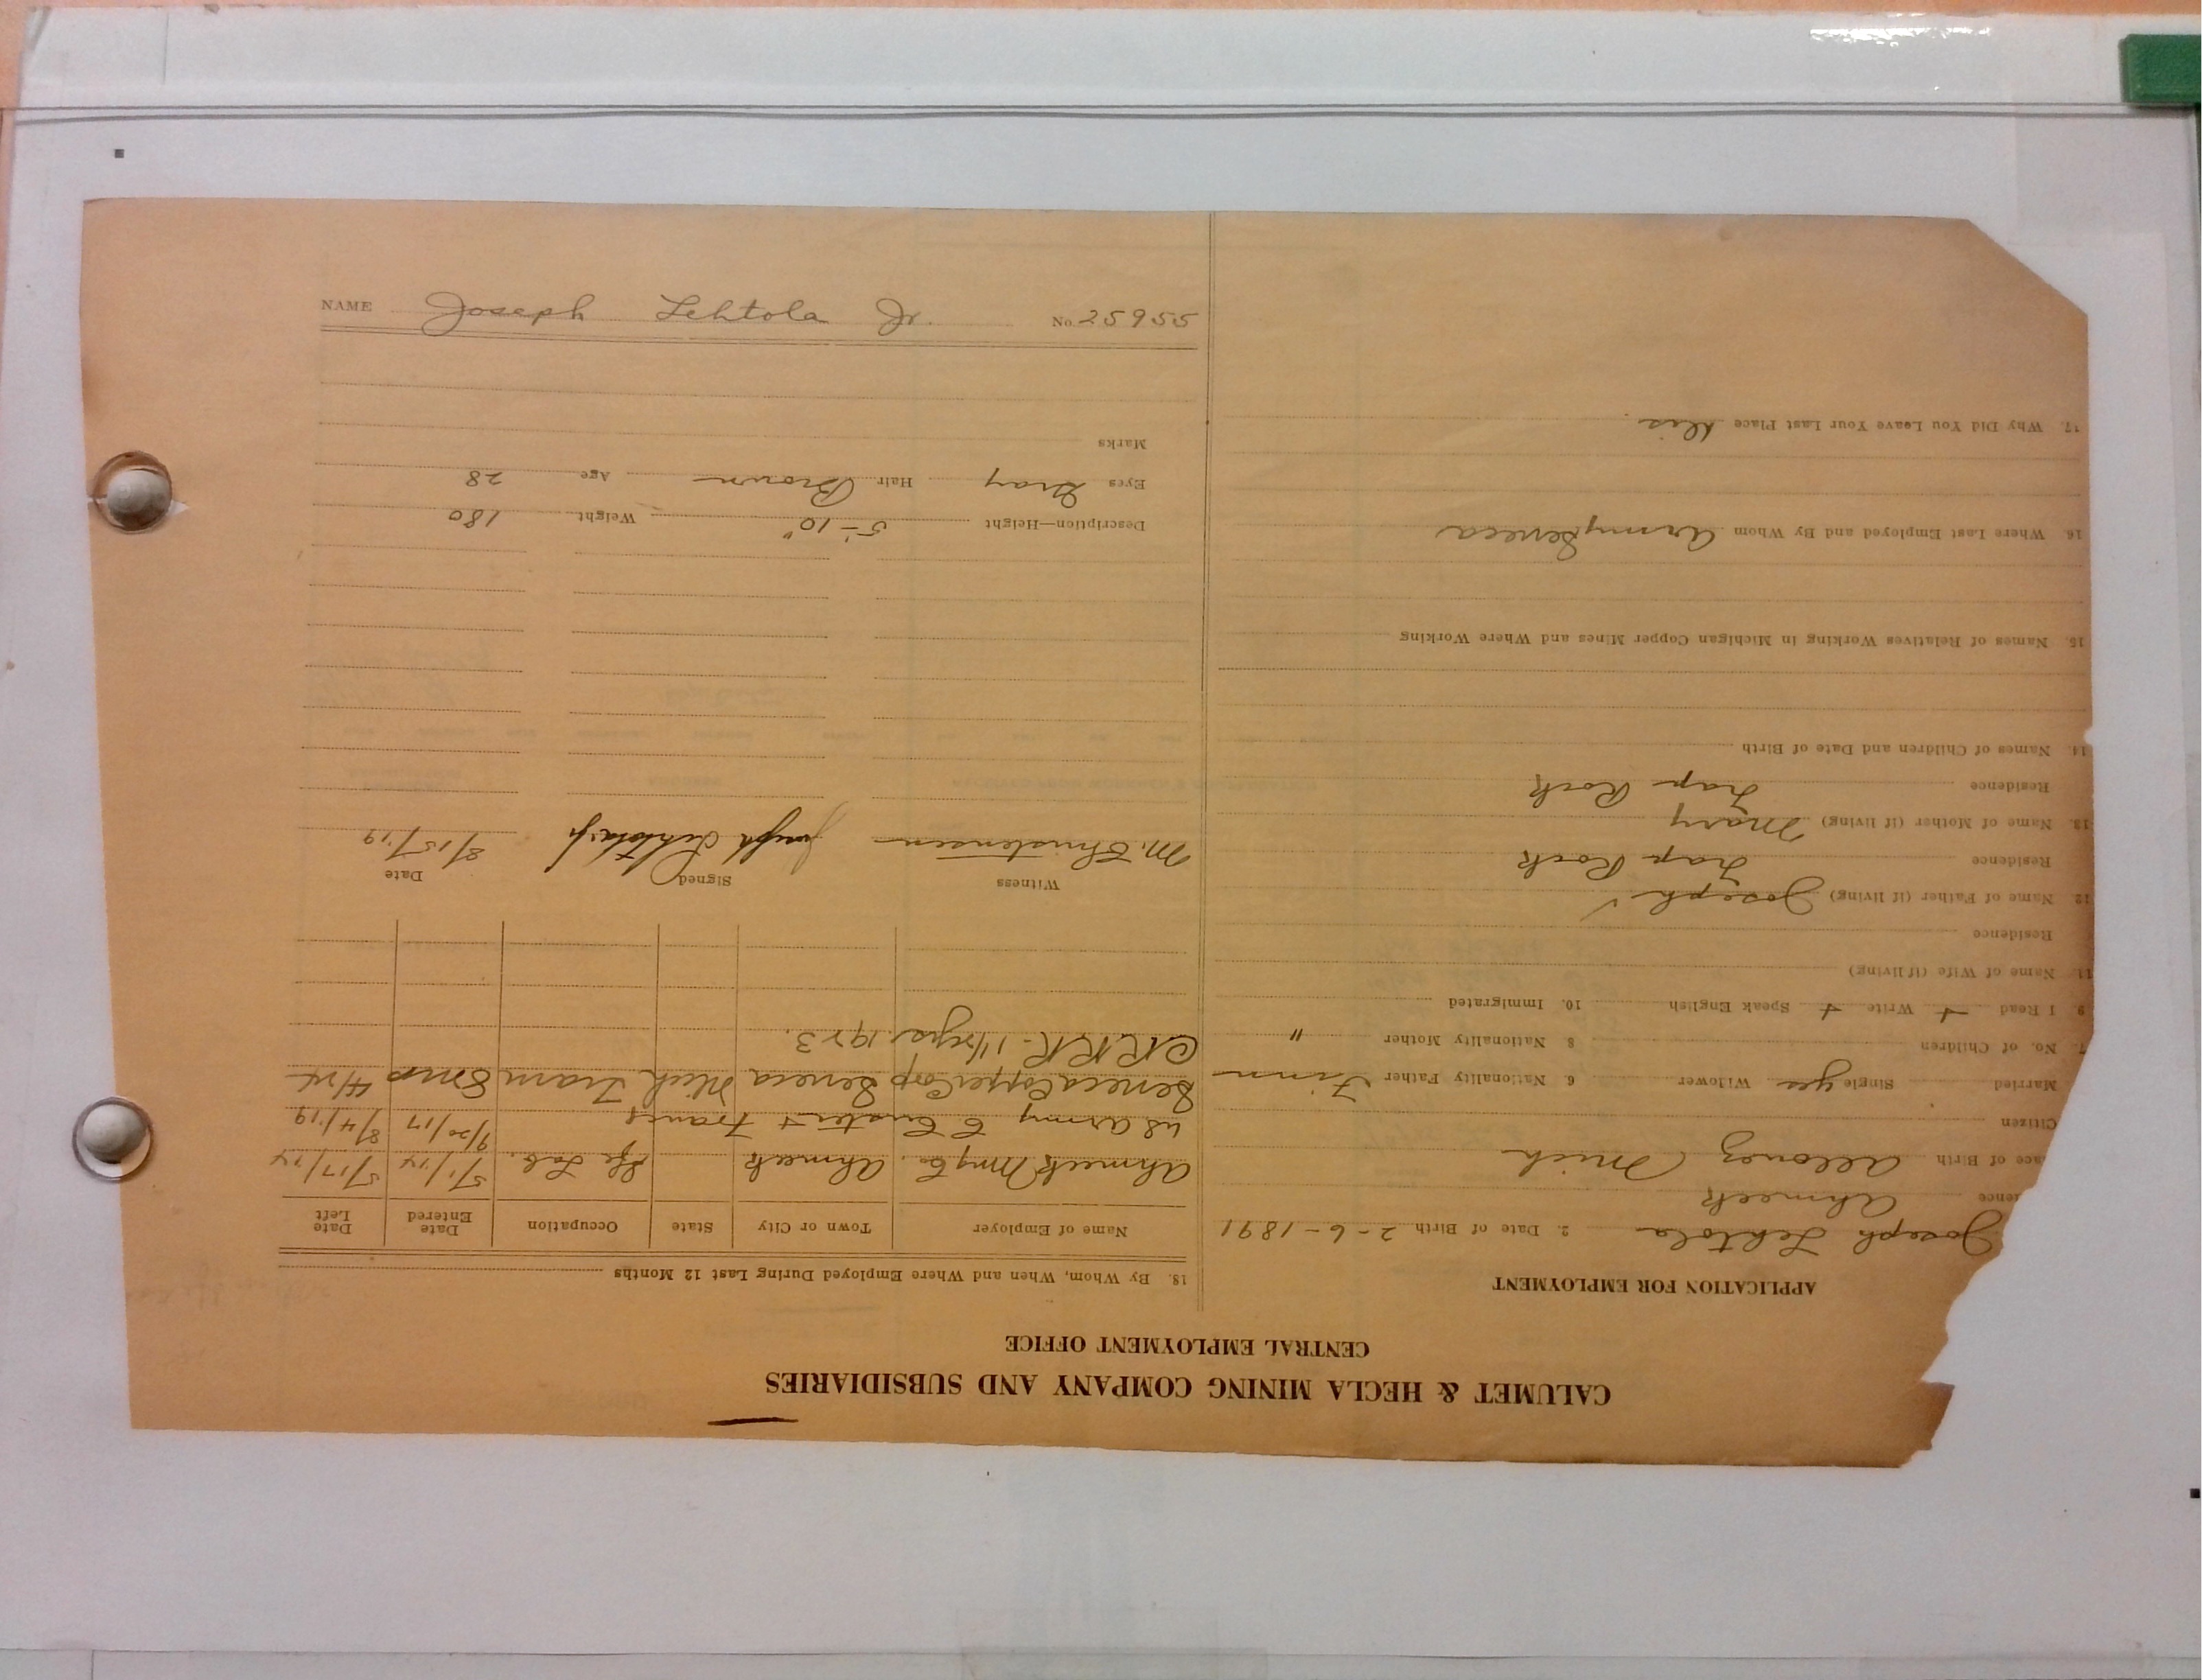 CALUMET & HECLA MINING COMPANY AND SUBSIDIARIES
CENTRAL EMPLOYMENT OFFICE
APPLICATION FOR EMPLOYMENT
Joseph Lehtola 2. Date of Birth 2-6-1891
ence Ahmeek
ace of Birth Allouez Mich
Citizen
Married Single yes Widower 6. Nationality Father Finn
7. No. of Children 8 Nationality Mother "
9 I Read + Write + Speak English 10. Immigrated
11. Name of Wife (if living)
Residence
12. Name of Father (if living) Joseph ✓
Residence Trap Rock
13. Name of Mother (if living) Mary
Residence Trap Rock
14. Names of Children and Date of Birth
15. Names of Relatives Working in Michigan Copper Mines and Where Working
16. Where Last Employed and By Whom Army Seneca
17. Why Did You Leave Your Last Place Dis.
18. By Whom, When and Where Employed During Last 12 Months
Name of Employer Town or City State Occupation Date Entered Date Left
Ahmeek Mng Co. Ahmeek Sfe Lab. 5/1/14 5/17/14
US Army France 9/20/17 8/4/19
Seneca Copper Corp Seneca Mich Tram
1923.
Witness Signed Date
M. Christensen Joseph Lehtola Jr 8/15/19
Description—Height 5'-10" Weight 180
Eyes Gray Hair Brown Age 28
Marks
NAME Joseph Lehtola Jr. No. 25955